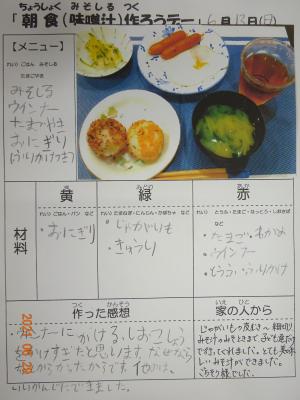 ちょうしょく みそしる つく
「朝食(味噌汁)作ろうデー」6月13日(日)
【メニュー】
れい) ごはん みそしる
たまごやき
みそしる
ウインナー
たまごやき
おにぎり
(ふりかけつき)
き
黄
みどり
緑
あか
赤
れい)ごはん・パン など
れい)たまねぎ・にんじん・かぼちゃ など
れい)とうふ・たまご・なっとう・しおさば など
材料
・おにぎり
・じゃがいも
・きゅうり
・たまご・わかめ
・ウインナー
・とうふ・ふりかけ
つく かんそう
作った感想
いえ ひと
家の人から
ウインナーにかける、しおこしょう
をかけすぎたと思います。なぜなら
からかったからです。他は、
いいかんじにできました。
じゃがいもの皮むき〜細切り
みそ汁のみそときまで、子ども達だけ
でしてくれました。とても美味
しいみそ汁ができました。
ごちそう様でした。